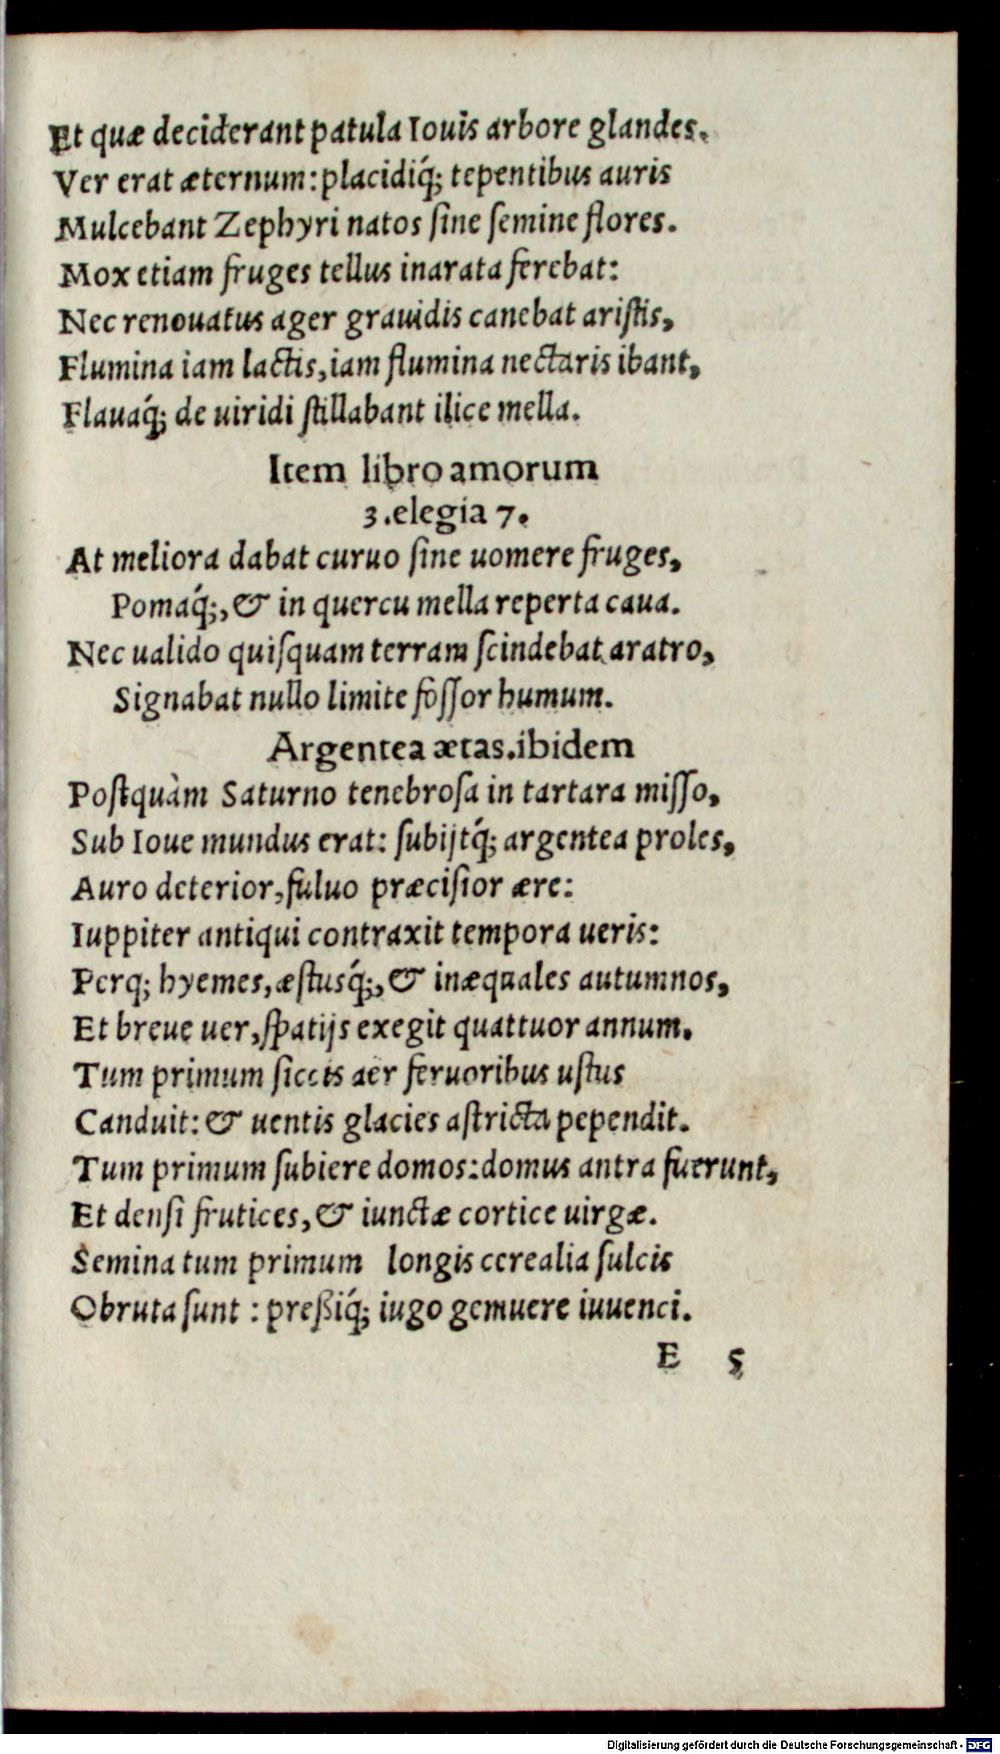 Et quæ deciderant patula Iouis arbore glandes.
Ver erat æternum: placidiq́; tepentibus auris
Mulcebant Zephyri natos ſine ſemine flores.
Mox etiam fruges tellus inarata ferebat:
Nec renouatus ager grauidis canebat ariſtis,
Flumina iam lactis, iam flumina nectaris ibant,
Flauaq́; de uiridi ſtillabant ilice mella.
Item libro amorum
3. elegia 7.
At meliora dabat curuo ſine uomere fruges,
Pomaq́;, & in quercu mella reperta caua.
Nec ualido quiſquam terram ſcindebat aratro,
Signabat nullo limite foſſor humum.
Argentea ætas. ibidem
Poſtquàm Saturno tenebroſa in tartara miſſo,
Sub Ioue mundus erat: ſubijtq́; argentea proles,
Auro deterior, fuluo præciſior ære:
Iuppiter antiqui contraxit tempora ueris:
Perq; hyemes, æſtusq́;, & inæquales autumnos,
Et breue uer, ſpatijs exegit quattuor annum.
Tum primum ſiccis aër feruoribus uſtus
Canduit: & uentis glacies aſtricta pependit.
Tum primum ſubiere domos: domus antra fuerunt,
Et denſi frutices, & iunctæ cortice uirgæ.
Semina tum primum longis cerealia ſulcis
Obruta ſunt : preßiq́; iugo gemuere iuuenci.
E 5
Digitalisierung gefördert durch die Deutsche Forschungsgemeinschaft - DFG